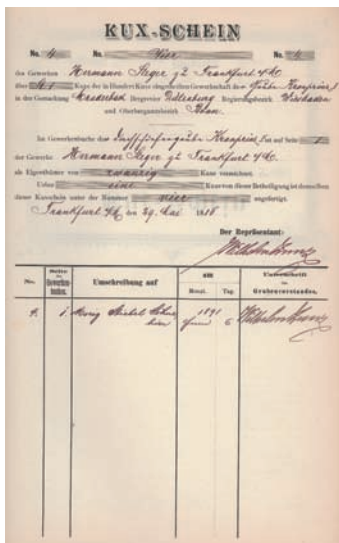 KUX-SCHEIN
No. 4 No. Vier No. 4
des Gewerken Hermann Jäger zu Frankfurt a/M.
über Kuxe der in Hundert Kuxe eingetheilten Gewerkschaft des Grube Kronprinz
in der Gemarkung Bergrevier Dillenburg Regierungsbezirk Wiesbaden
und Oberbergamtsbezirk Bonn.
Im Gewerkenbuche des Kronprinz, ist auf Seite 1
der Gewerke Hermann Jäger zu Frankfurt a/M.
als Eigenthümer von zwanzig Kuxe verzeichnet.
Ueber eine Kuxe von dieser Betheiligung ist demselben
dieser Kuxschein unter der Nummer vier ausgefertigt.
Frankfurt a/M den 29. Mai 18
Der Repräsentant:
Wilhelm
No. Seite des Gewerkenbuches. Umschreibung auf am Monat. Tag. Unterschrift des Grubenvorstandes.
4. 1. 1891 6 Wilhelm